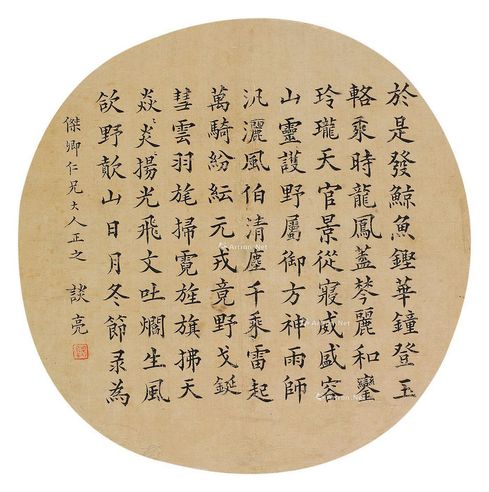 於是發鯨魚鏗華鐘登玉
輅乘時龍鳳蓋棽麗和鑾
玲瓏天官景從寢威盛容
山靈護野屬御方神雨師
汎灑風伯清塵千乘雷起
萬騎紛紜元戎竟野戈鋋
彗雲羽旄掃霓旌旗拂天
焱、炎、揚光飛文吐爓生風
欱野歕山日月冬節為
傑卿仁兄大人正之 談亮